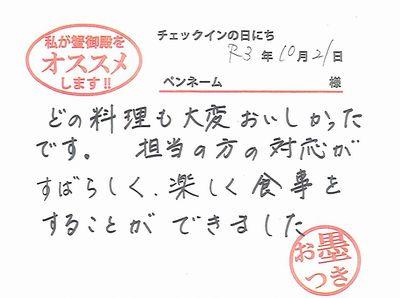 私が蟹御殿を
オススメ
します!!
チェックインの日にち
R3年10月21日
ペンネーム 様
どの料理も大変おいしかった
です。 担当の方の対応が
すばらしく、楽しく食事を
することができました
お墨
つき